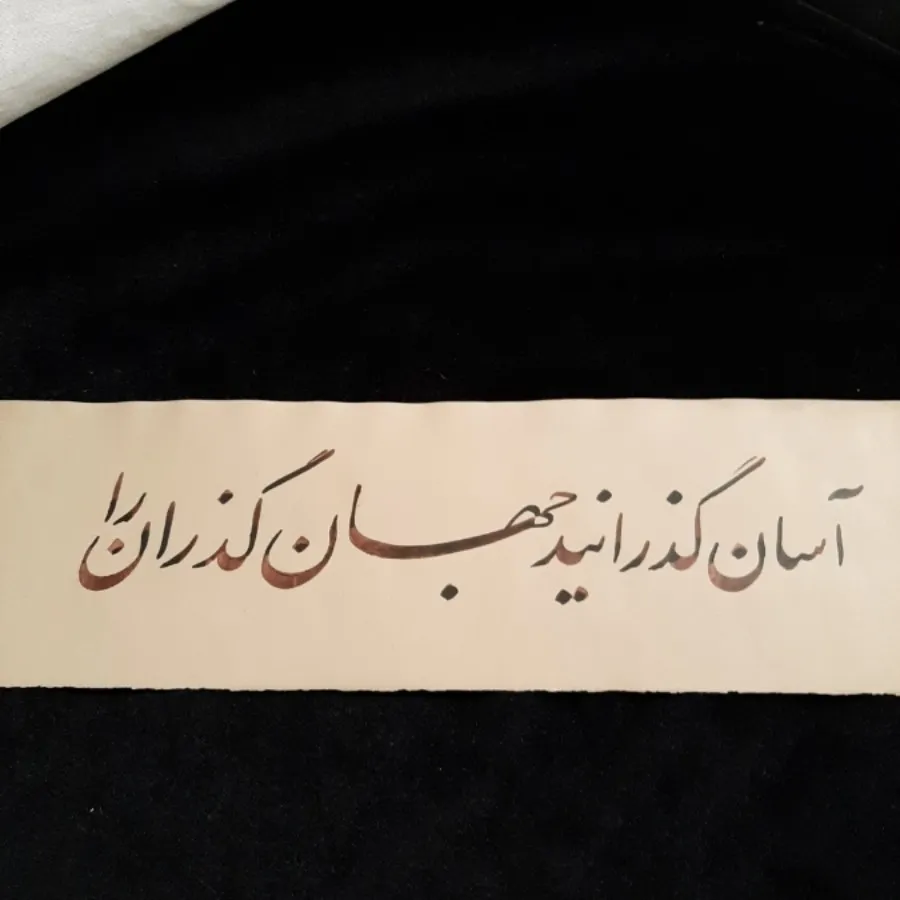 آسان گذرانید جهان گذران را